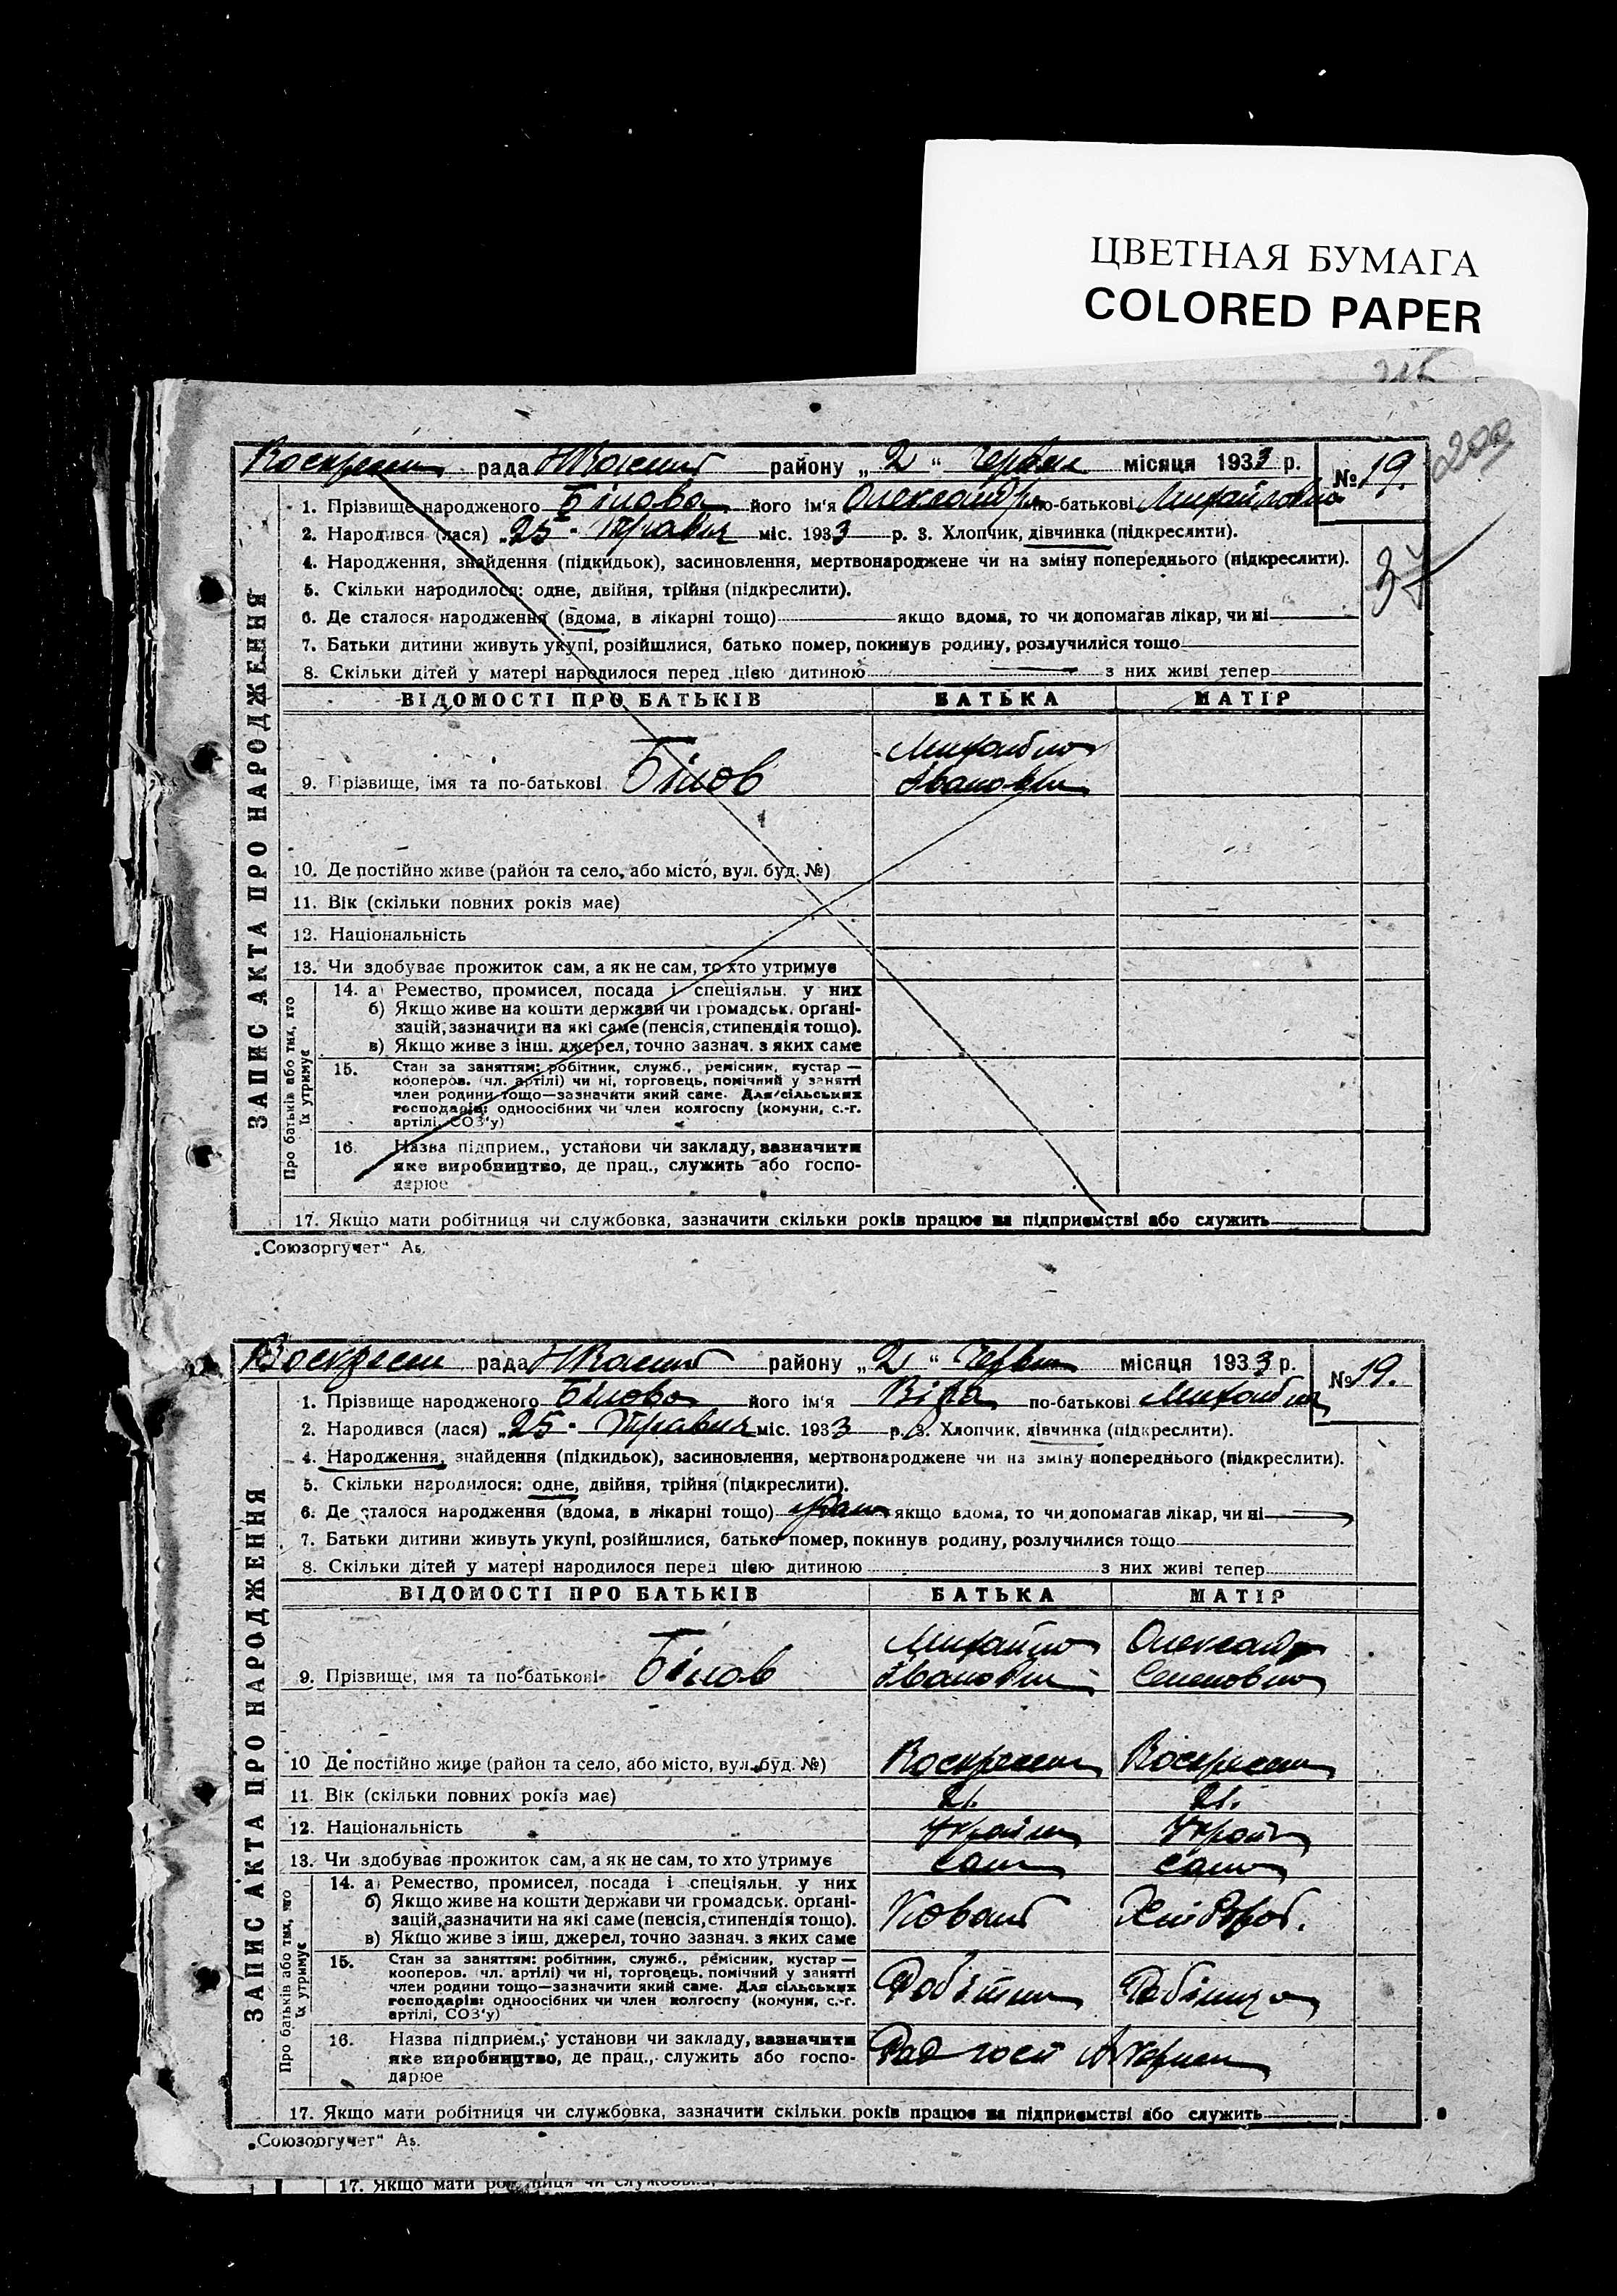 ЦВЕТНАЯ БУМАГА
COLORED PAPER
200
рада району „2“ Червня місяця 1933 р. № 19.
1. Прізвище народженого Білова його ім'я Олександра по-батькові Михайловна
2. Народився (лася) „25" Травня міс. 1933 р. 3. Хлопчик, дівчинка (підкреслити).
4. Народження, знайдення (підкидьок), засиновлення, мертвонароджене чи на зміну попереднього (підкреслити).
5. Скільки народилося: одне, двійня, трійня (підкреслити).
6. Де сталося народження (вдома, в лікарні тощо) якщо вдома, то чи допомагав лікар, чи ні
7. Батьки дитини живуть укупі, розійшлися, батько помер, покинув родину, розлучилися тощо
8. Скільки дітей у матері народилося перед цією дитиною з них живі тепер
ВІДОМОСТІ ПРО БАТЬКІВ БАТЬКА МАТІР
9. Прізвище, імя та по-батькові Білов Михайло
Іванович
10. Де постійно живе (район та село, або місто, вул. буд. №)
11. Вік (скільки повних років має)
12. Національність
13. Чи здобуває прожиток сам, а як не сам, то хто утримує
14. а) Ремество, промисел, посада і спеціяльн. у них
б) Якщо живе на кошти держави чи громадськ. органі-
зацій, зазначити на які саме (пенсія, стипендія тощо).
в) Якщо живе з інш. джерел, точно зазнач. з яких саме
15. Стан за заняттям: робітник, служб., ремісник, кустар —
кооперов. (чл. артілі) чи ні, торговець, помічний у занятті
член родини тощо—зазначити який саме. Для сільських
господарів: одноосібних чи член колгоспу (комуни, с.-г.
артілі, СОЗ'у)
16. Назва підприєм., установи чи закладу, зазначити
яке виробництво, де прац., служить або госпо-
дарює
17. Якщо мати робітниця чи службовка, зазначити скільки років працює на підприємстві або служить
ЗАПИС АКТА ПРО НАРОДЖЕННЯ
Про батьків або тих, хто
їх утримує
„Союзоргучет“ А5.
рада району „2“ Червня місяця 1933 р. № 19.
1. Прізвище народженого Білова його ім'я Віра по-батькові
2. Народився (лася) „25" Травня міс. 1933 р. 3. Хлопчик, дівчинка (підкреслити).
4. Народження, знайдення (підкидьок), засиновлення, мертвонароджене чи на зміну попереднього (підкреслити).
5. Скільки народилося: одне, двійня, трійня (підкреслити).
6. Де сталося народження (вдома, в лікарні тощо) якщо вдома, то чи допомагав лікар, чи ні
7. Батьки дитини живуть укупі, розійшлися, батько помер, покинув родину, розлучилися тощо
8. Скільки дітей у матері народилося перед цією дитиною з них живі тепер
ВІДОМОСТІ ПРО БАТЬКІВ БАТЬКА МАТІР
9. Прізвище, імя та по-батькові Білов Михайло Олександр
Іванович Семеновна
10 Де постійно живе (район та село, або місто, вул. буд. №) Воскресен Воскресен
11. Вік (скільки повних років має) 21. 21.
12. Національність
13. Чи здобуває прожиток сам, а як не сам, то хто утримує сам сама
14. а) Ремество, промисел, посада і спеціяльн. у них
б) Якщо живе на кошти держави чи громадськ. органі-
зацій, зазначити на які саме (пенсія, стипендія тощо). Коваль
в) Якщо живе з інш. джерел, точно зазнач. з яких саме
15. Стан за заняттям: робітник, служб., ремісник, кустар —
кооперов. чл. артілі) чи ні, торговець, помічний у занятті
член родини тощо—зазначити який саме. Для сільських
господарів: одноосібних чи член колгоспу (комуни, с.-г.
артілі, СОЗ'у) Робітник Робітниця
16. Назва підприєм., установи чи закладу, зазначити
яке виробництво, де прац., служить або госпо-
дарює Радгосп
17. Якщо мати робітниця чи службовка, зазначити скільки років працює на підприємстві або служить
ЗАПИС АКТА ПРО НАРОДЖЕННЯ
Про батьків або тих, хто
їх утримує
„Союзоргучет“ А5.
17. Якщо мати